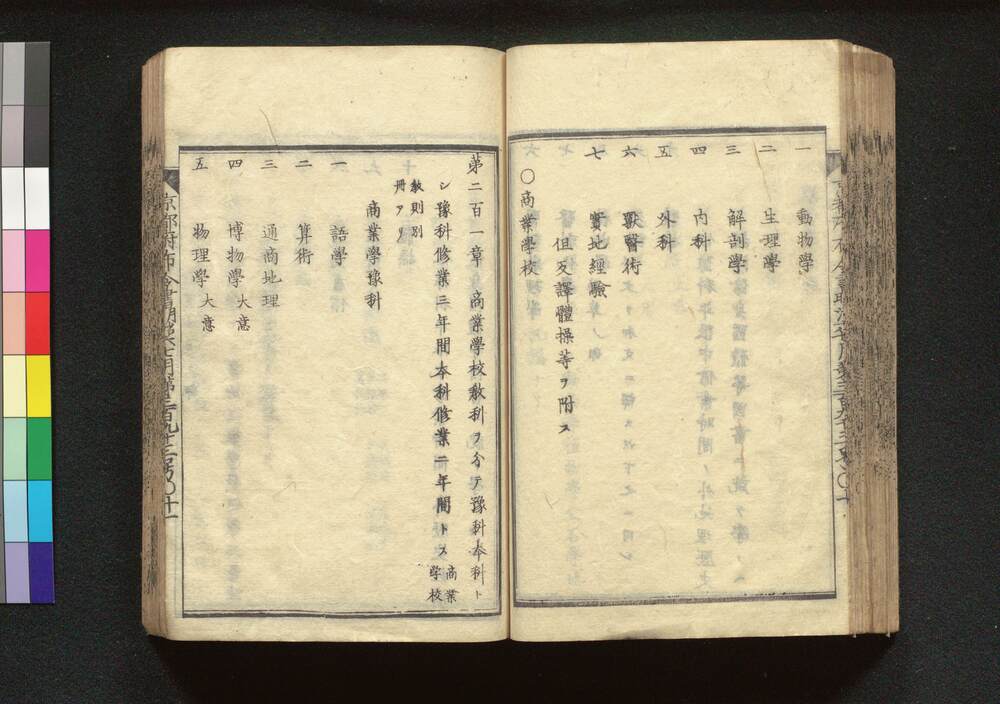 一 動物學
二 生理學
三 解剖學
四 内科
五 外科
六 獸醫術
七 實地經驗
但反譯體操等ヲ附ス
○商業學校
第二百一章 商業學校教科ヲ分テ豫科本科ト
シ豫科修業三年間本科修業二年間トス 商業學校
教則別冊アリ
商業學豫科
一 語學
二 算術
三 通商地理
四 博物學 大意
五 物理學 大意